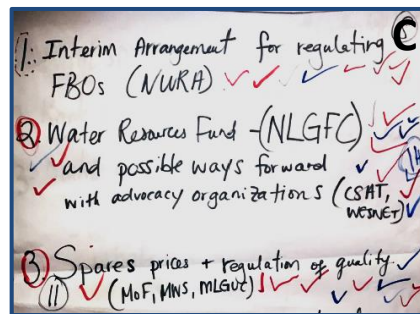 1. Interim Arrangement for regulating C
FBOs (NWRA)
2. Water Resources Fund - (NLGFC)
and possible ways forward
with advocacy organizations (CSAT,
WESNET)
3. Spares prices + regulation of quality.
11 (MoF, MWS, MLGUC)